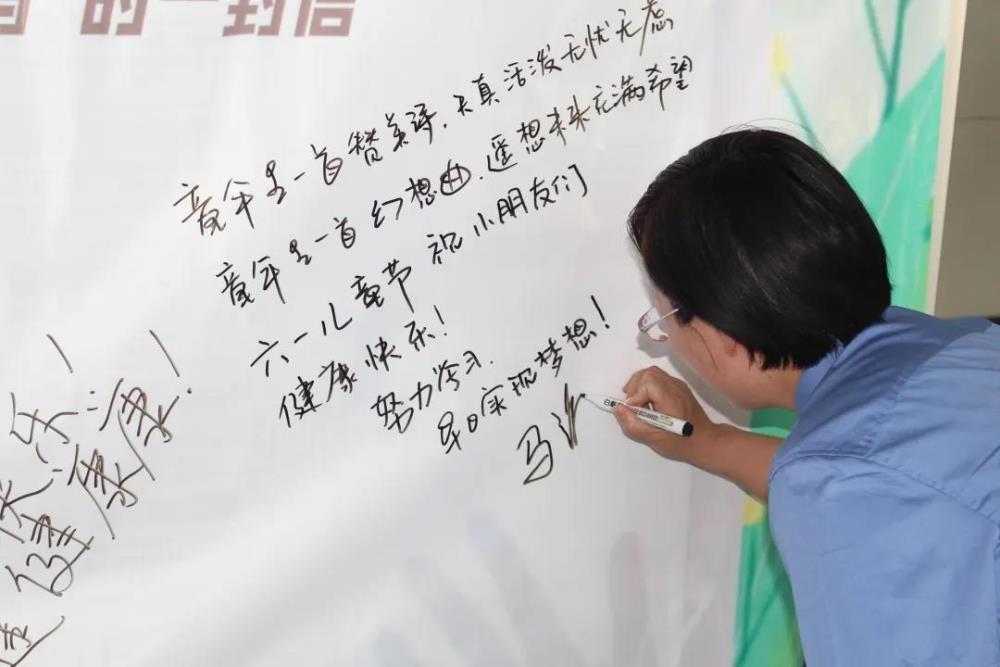 的一封信
童年是一首赞美诗，天真活泼无忧无虑
童年是一首幻想曲，遥想未来充满希望
六一儿童节 祝小朋友们
健康快乐！
努力学习.
早日实现梦想！
马
乐！
健康！